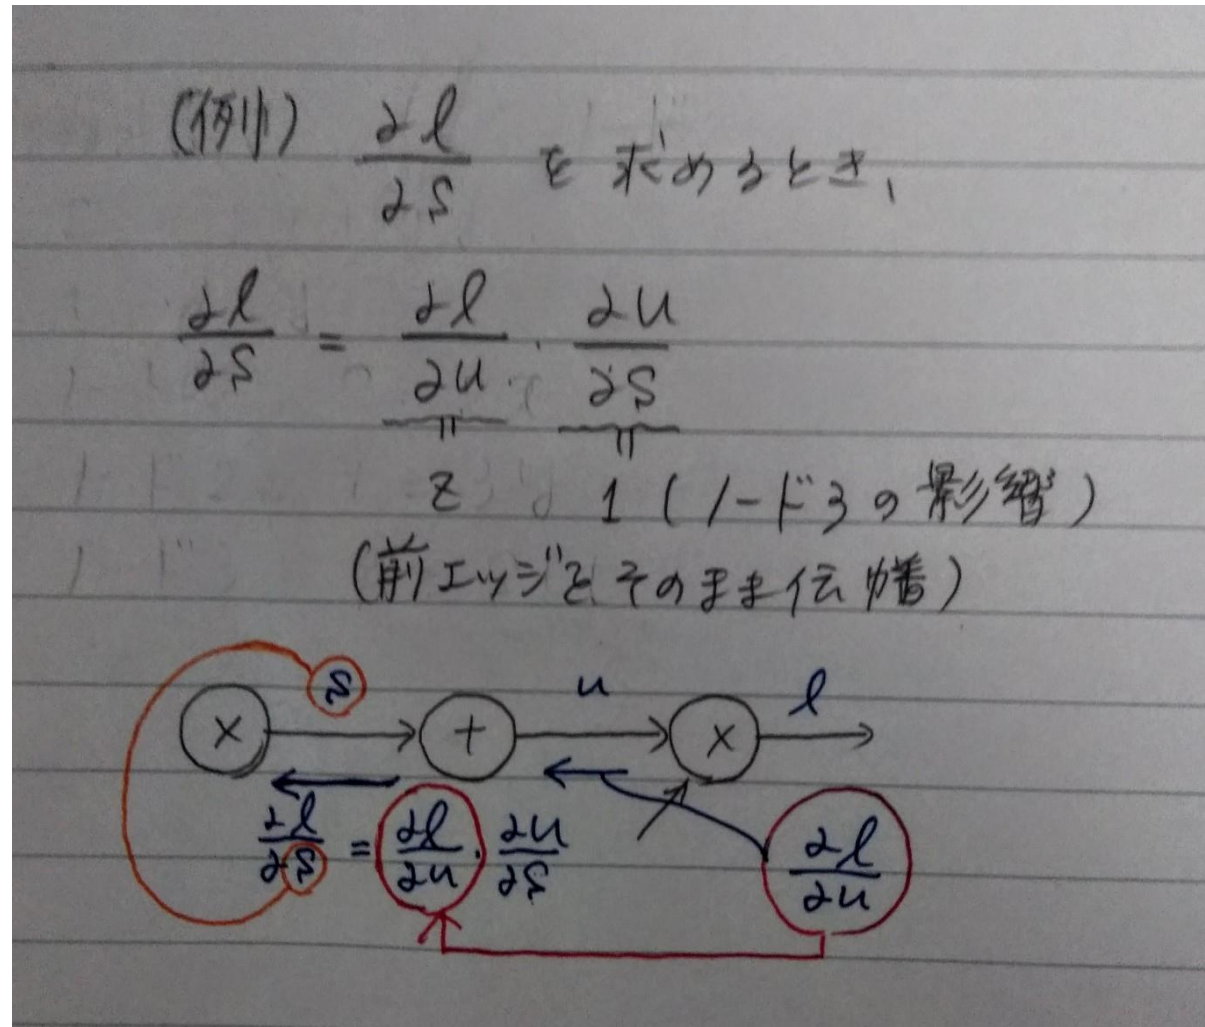 (例) ∂l/∂s を求めるとき、
∂l/∂s = ∂l/∂u · ∂u/∂s
z 1 (ノード3の影響)
(前エッジをそのまま伝播)
s u l
× + ×
∂l/∂s = ∂l/∂u · ∂u/∂s ∂l/∂u